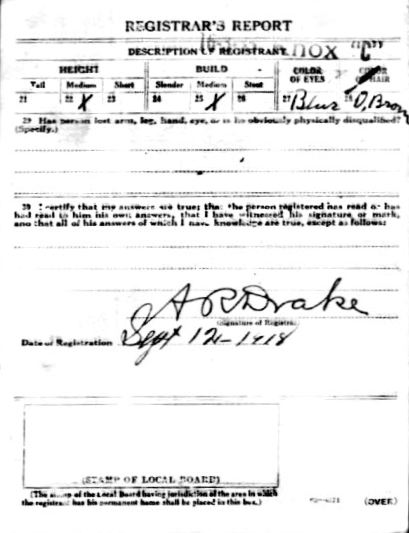 REGISTRAR'S REPORT
DESCRIPTION OF REGISTRANT KNOX "C"
HEIGHT BUILD COLOR OF EYES COLOR OF HAIR
Tall Medium Short Slender Medium Stout
21 22 X 23 24 25 X 26 27 Blue 28 D. Brown
29 Has person lost arm, leg, hand, eye, or is he obviously physically disqualified?
(Specify.)
30 I certify that my answers are true; that the person registered has read or has
had read to him his own answers, that I have witnessed his signature or mark,
and that all of his answers of which I have knowledge are true, except as follows:
A R Drake
(Signature of Registrar)
Date of Registration Sept 12-1918
(STAMP OF LOCAL BOARD)
(The stamp of the Local Board having jurisdiction of the area in which
the registrant has his permanent home shall be placed in this box.)
(OVER)